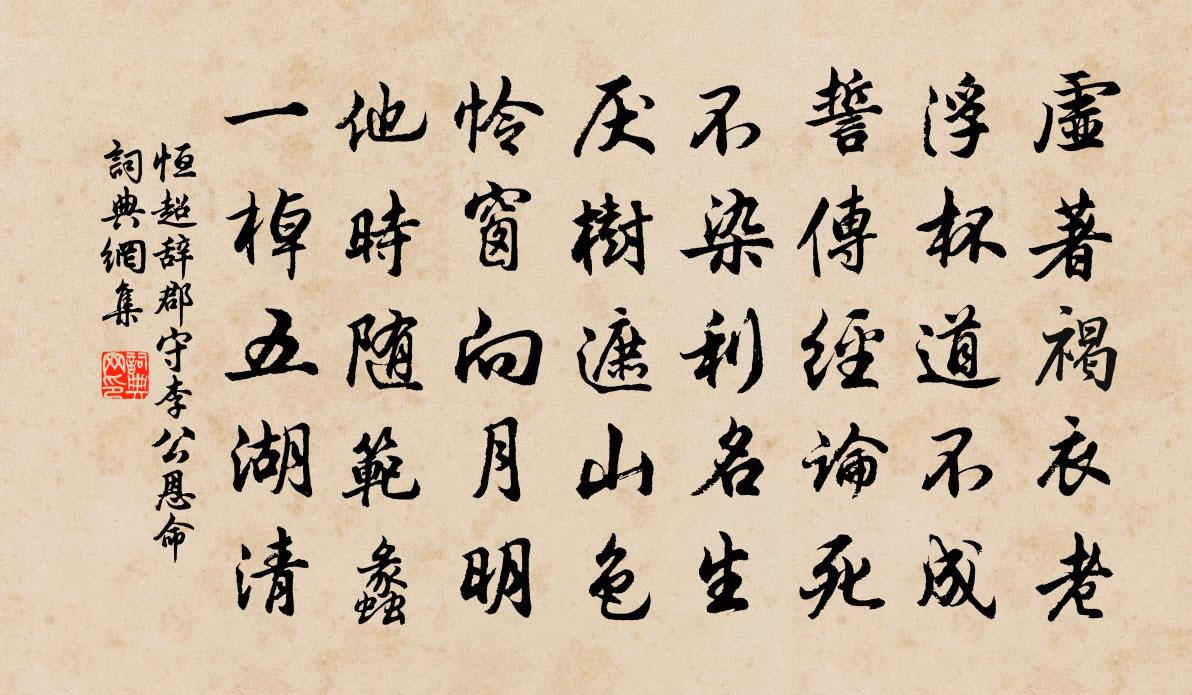 虛著褐衣老
浮杯道不成
誓傳經論死
不染利名生
厌樹遮山色
怜窗向月明
他時随範蠡
一棹五湖清
恒超辞郡守李公恩命
詞典網集
詞典网印